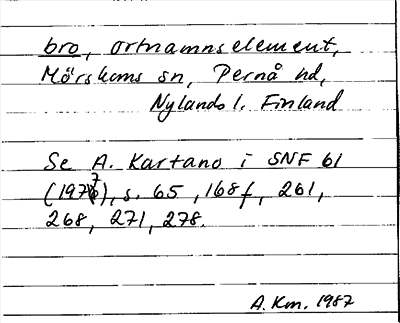 bro, ortnamnselement,
Mörskoms sn, Pernå hd,
Nylands l. Finland
Se A. Kartano i SNF 61
(1977), s. 65, 168f, 261,
268, 271, 278.
A. Km. 1987